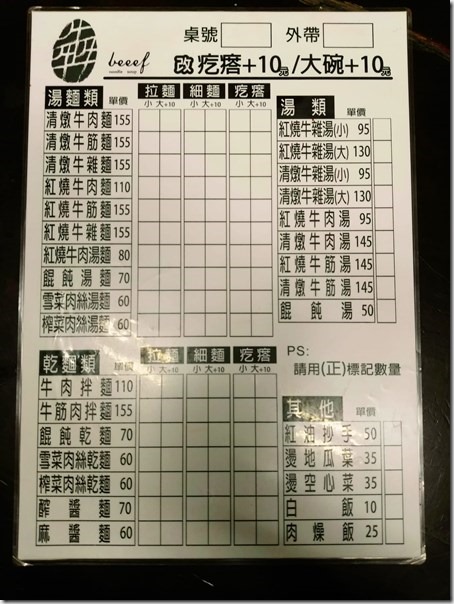 桌號 外帶
beeef
noodle soup
改疙瘩+10元/大碗+10元
湯麵類 單價 拉麵 細麵 疙瘩
小 大+10 小 大+10 小 大+10
清燉牛肉麵 155
清燉牛筋麵 155
清燉牛雜麵 155
紅燒牛肉麵 110
紅燒牛筋麵 155
紅燒牛雜麵 155
紅燒牛肉湯麵 80
餛飩湯麵 70
雪菜肉絲湯麵 60
榨菜肉絲湯麵 60
湯類 單價
紅燒牛雜湯(小) 95
紅燒牛雜湯(大) 130
清燉牛雜湯(小) 95
清燉牛雜湯(大) 130
紅燒牛肉湯 95
清燉牛肉湯 145
紅燒牛筋湯 145
清燉牛筋湯 145
餛飩湯 50
乾麵類 單價 拉麵 細麵 疙瘩
小 大+10 小 大+10 小 大+10
牛肉拌麵 110
牛筋肉拌麵 155
餛飩乾麵 70
雪菜肉絲乾麵 60
榨菜肉絲乾麵 60
醡醬麵 70
麻醬麵 60
PS:
請用(正)標記數量
其他 單價
紅油抄手 50
燙地瓜葉 35
燙空心菜 35
白飯 10
肉燥飯 25